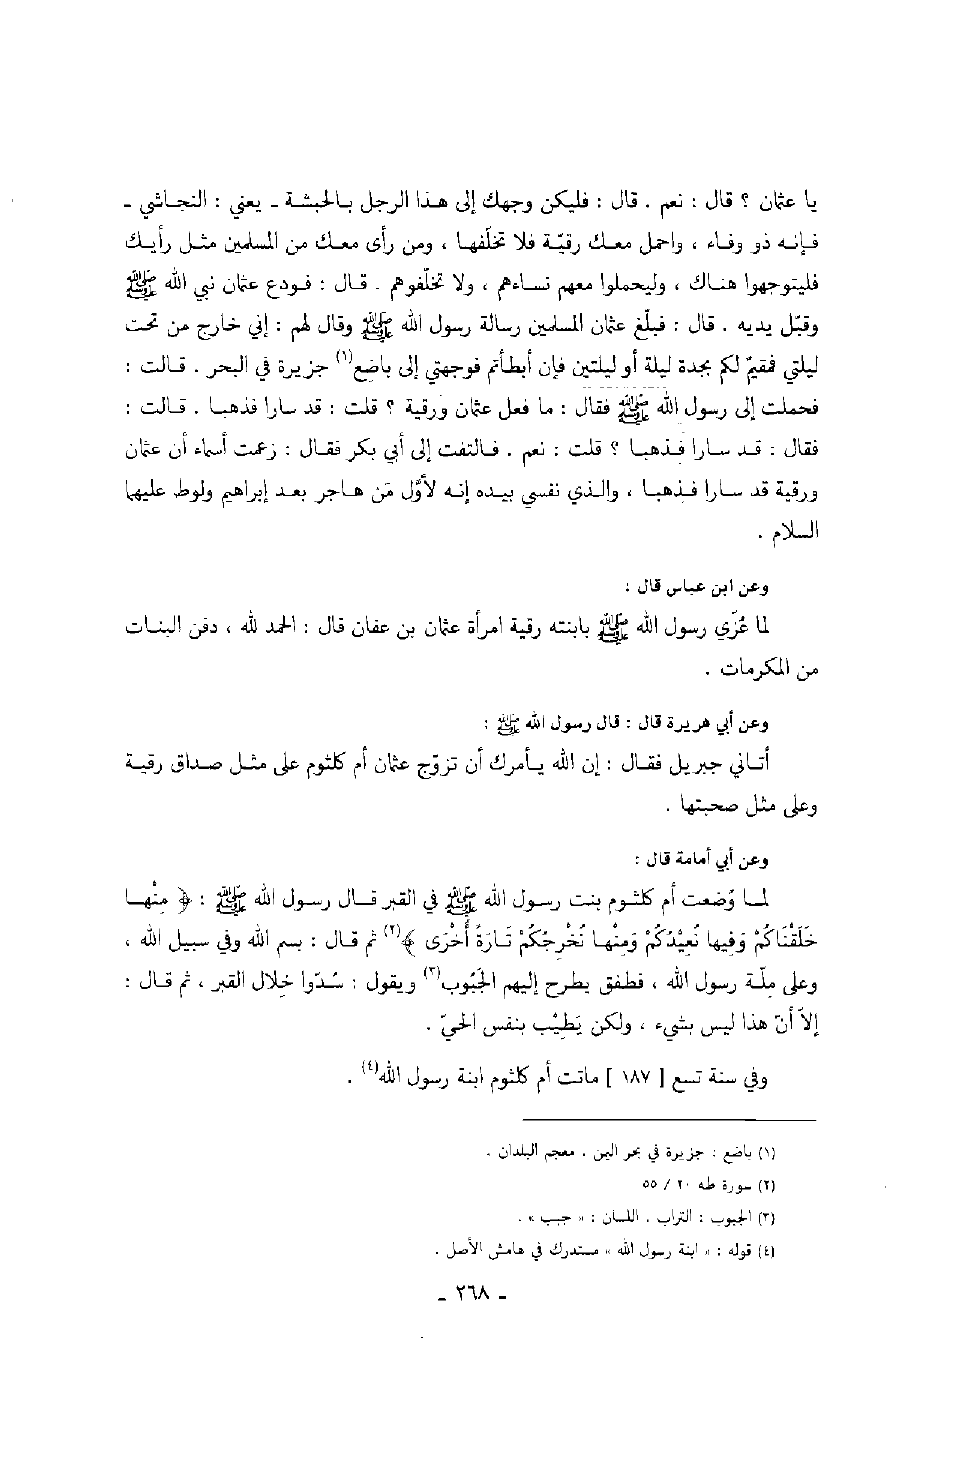 يا عثمان ؟ قال : نعم . قال : فليكن وجهك إلى هذا الرجل بالحبشة ـ يعني : النجاشي ـ
فإنه ذو وفاء ، واحمل معك رقيّة فلا تخلّفها ، ومن رأى معك من المسلمين مثل رأيك
فليتوجهوا هناك ، وليحملوا معهم نساءهم ، ولا تخلّفوهم . قال : فودع عثمان نبي الله ﷺ
وقبّل يديه . قال : فبلّغ عثمان المسلمين رسالة رسول الله ﷺ وقال لهم : إني خارج من تحت
ليلتي فمقيمٌ لكم بجدة ليلة أو ليلتين فإن أبطأتم فوجهتي إلى باضع(١) جزيرة في البحر . قالت :
فحملت إلى رسول الله ﷺ فقال : ما فعل عثمان ورقية ؟ قلت : قد سارا فذهبا . قالت :
فقال : قد سارا فذهبا ؟ قلت : نعم . فالتفت إلى أبي بكر فقال : زعمت أسماء أن عثمان
ورقية قد سارا فذهبا ، والذي نفسي بيده إنه لأوّل مَن هاجر بعد إبراهيم ولوط عليهما
السلام .
وعن ابن عباس قال :
لما عُزّي رسول الله ﷺ بابنته رقية امرأة عثمان بن عفان قال : الحمد لله ، دفن البنات
من المكرمات .
وعن أبي هريرة قال : قال رسول الله ﷺ :
أتاني جبريل فقال : إن الله يأمرك أن تزوّج عثمان أم كلثوم على مثل صداق رقية
وعلى مثل صحبتها .
وعن أبي أمامة قال :
لما وُضعت أم كلثوم بنت رسول الله ﷺ في القبر قال رسول الله ﷺ : ﴿ مِنْها
خَلَقْنَاكُمْ وَفِيها نُعِيْدُكُمْ وَمِنْها نُخْرِجُكُمْ تَارَةً أُخْرَى ﴾(٢) ثم قال : بسم الله وفي سبيل الله ،
وعلى مِلّة رسول الله ، فطفق يطرح إليهم الجَبُوب(٣) ويقول : سُدّوا خِلال القبر ، ثم قال :
إلاّ أنّ هذا ليس بشيء ، ولكن يَطيْب بنفس الحيّ .
وفي سنة تسع [ ١٨٧ ] ماتت أم كلثوم ابنة رسول الله(٤) .
(١) باضع : جزيرة في بحر اليمن . معجم البلدان .
(٢) سورة طه ٢٠ / ٥٥
(٣) الجبوب : التراب . اللسان : « جبب » .
(٤) قوله : « ابنة رسول الله » مستدرك في هامش الأصل .
ـ ٢٦٨ ـ